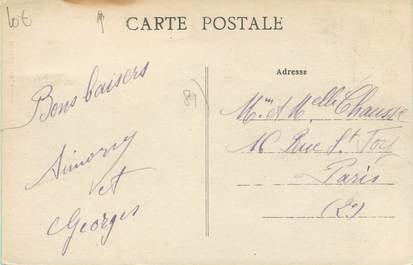 10€
CARTE POSTALE
Adresse
Bons baisers
Simony
et
Georges
89
Mme et Melle Chausse
16 Rue St Foy
Paris
(2e)